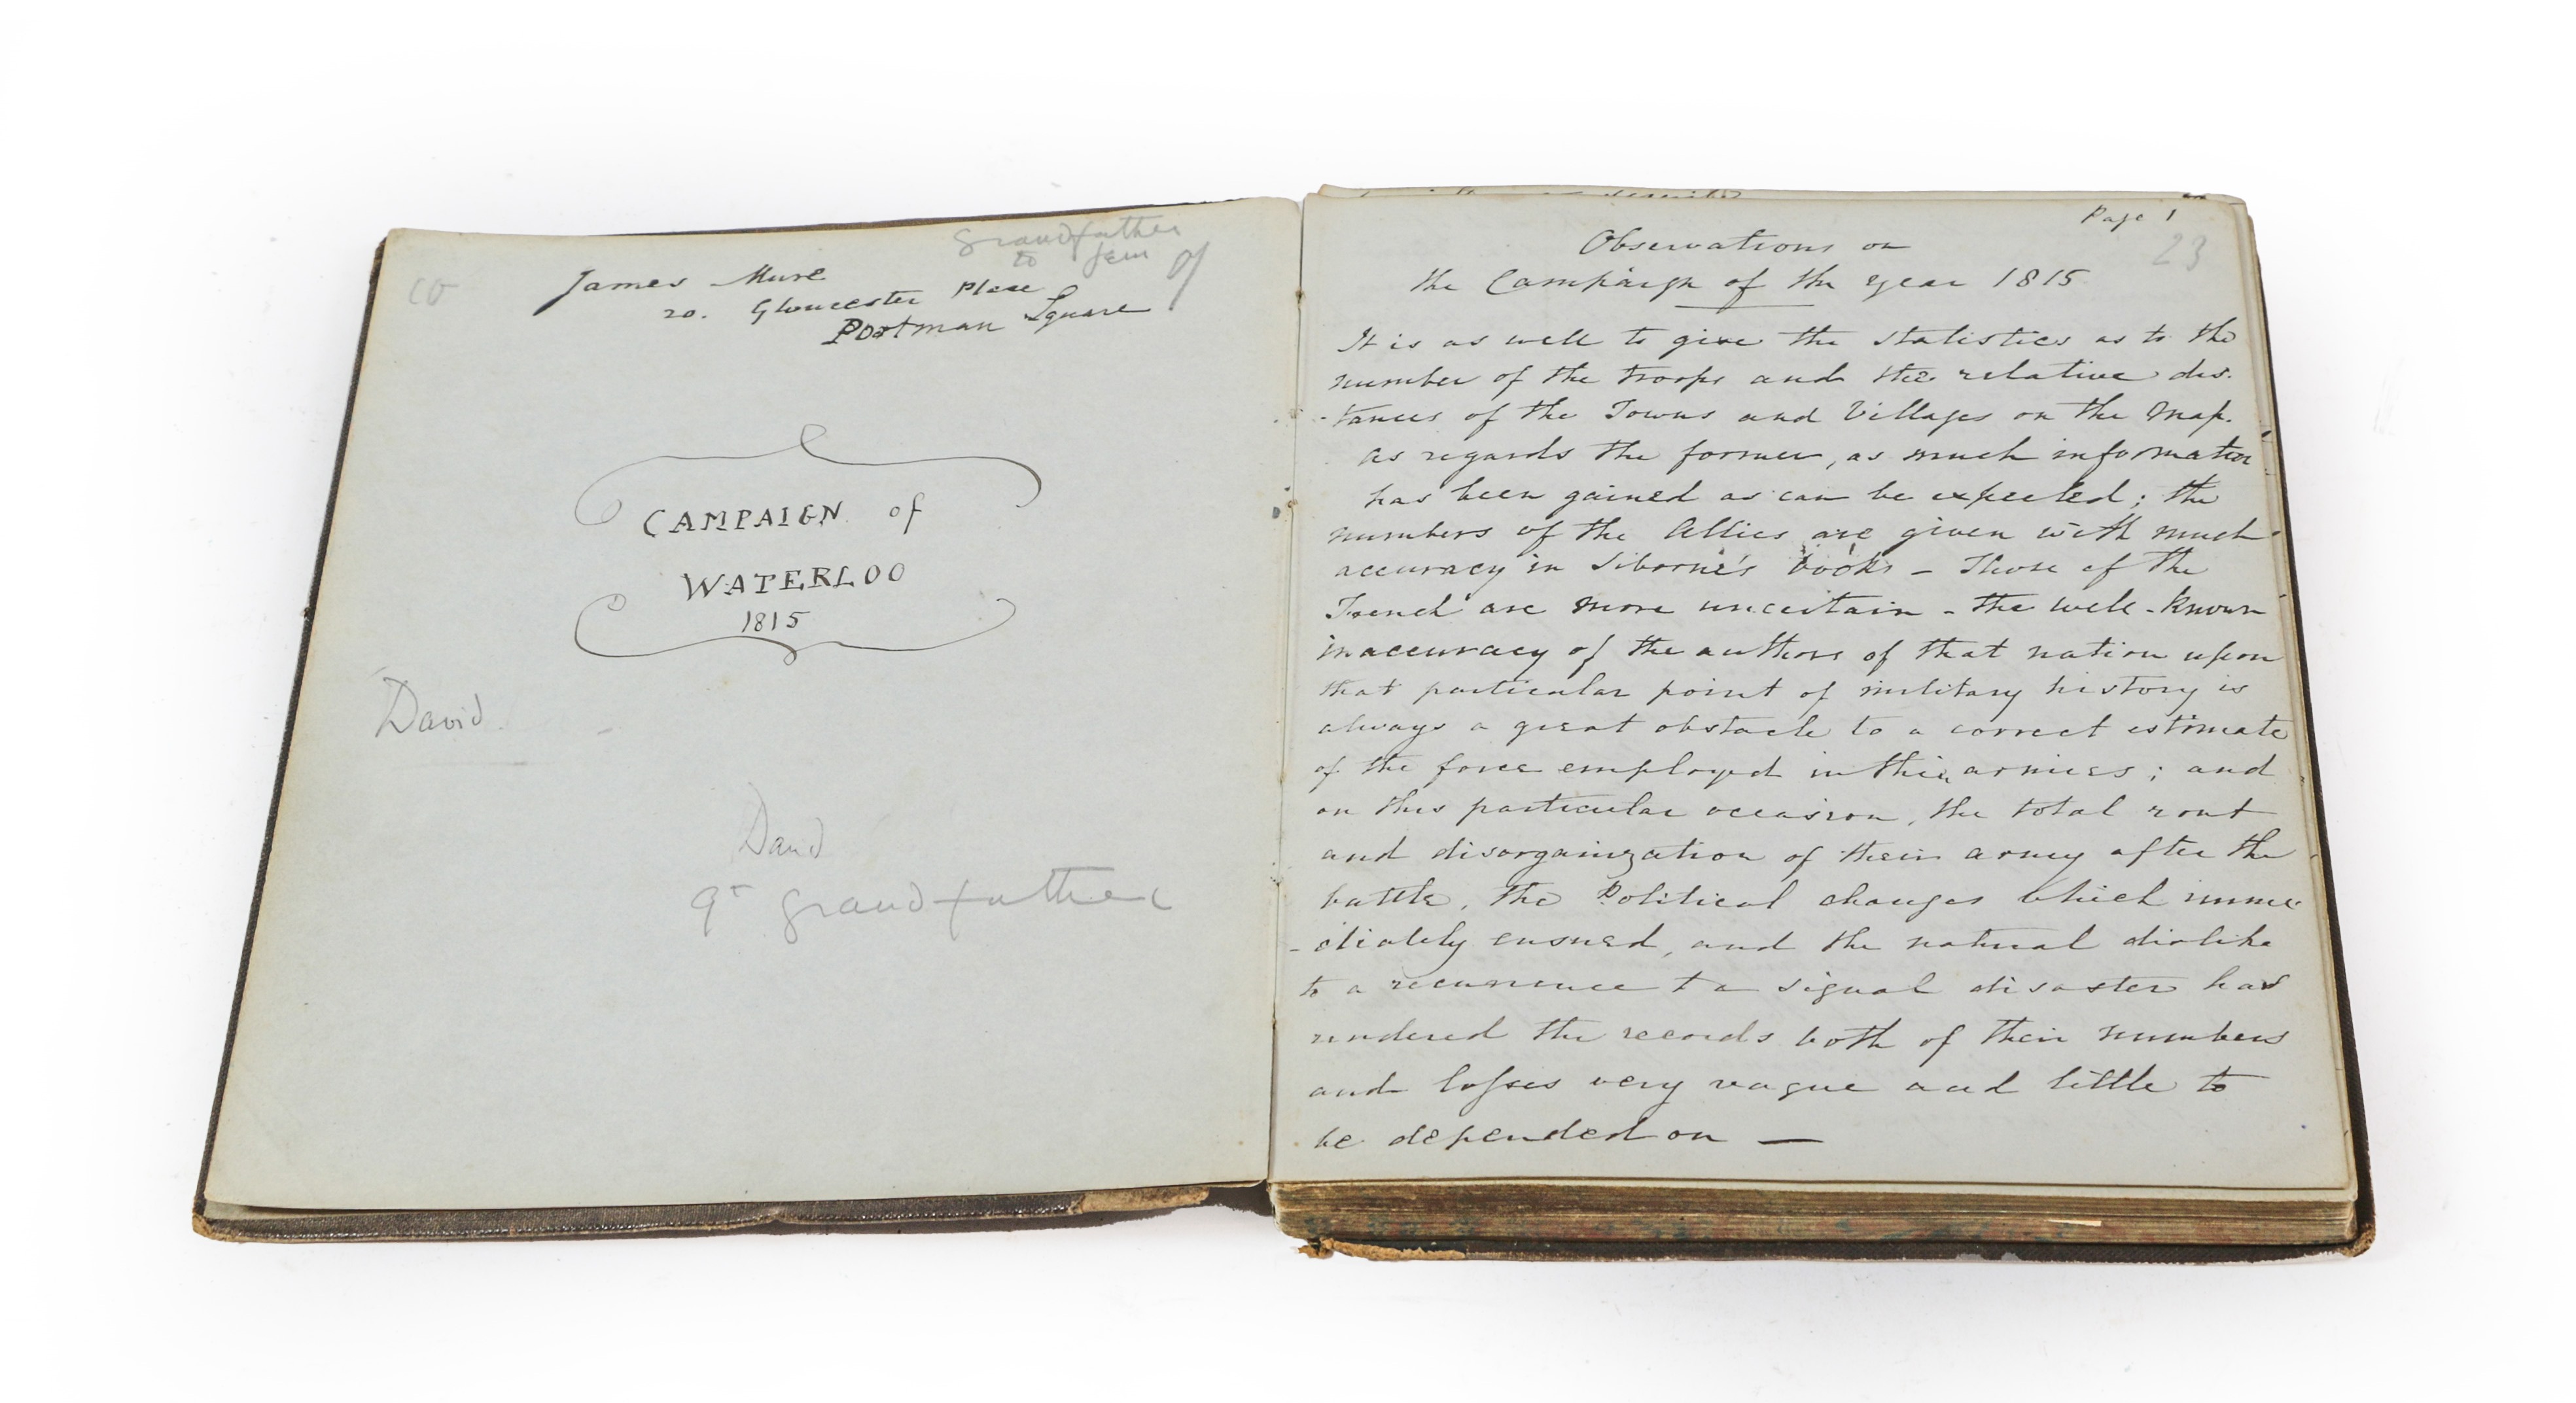 grandfather
to Jem
co
James Mure
20. Gloucester Place
Portman Square
CAMPAIGN of
WATERLOO
1815
David
David
gt grandfather
Page 1
23
Observations on
the Campaign of the year 1815
It is as well to give the statistics as to the
number of the troops and the relative dis-
-tances of the Towns and Villages on the Map.
as regards the former, as much information
has been gained as can be expected; the
numbers of the Allies are given with much
accuracy in Siborne's books - Those of the
French are more uncertain - the well-known
inaccuracy of the authors of that nation upon
that particular point of military history is
always a great obstacle to a correct estimate
of the force employed in their armies; and
on this particular occasion, the total rout
and disorganization of their army after the
battle, the Political changes which imme-
-diately ensued, and the natural dislike
to a recurrence to a signal disaster has
rendered the records both of their numbers
and losses very vague and little to
be depended on —